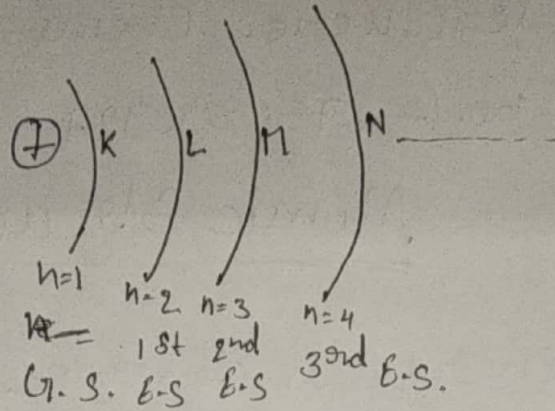 + K L M N
n=1 n=2 n=3 n=4
1st 2nd 3rd
G.S. E.S E.S E.S.